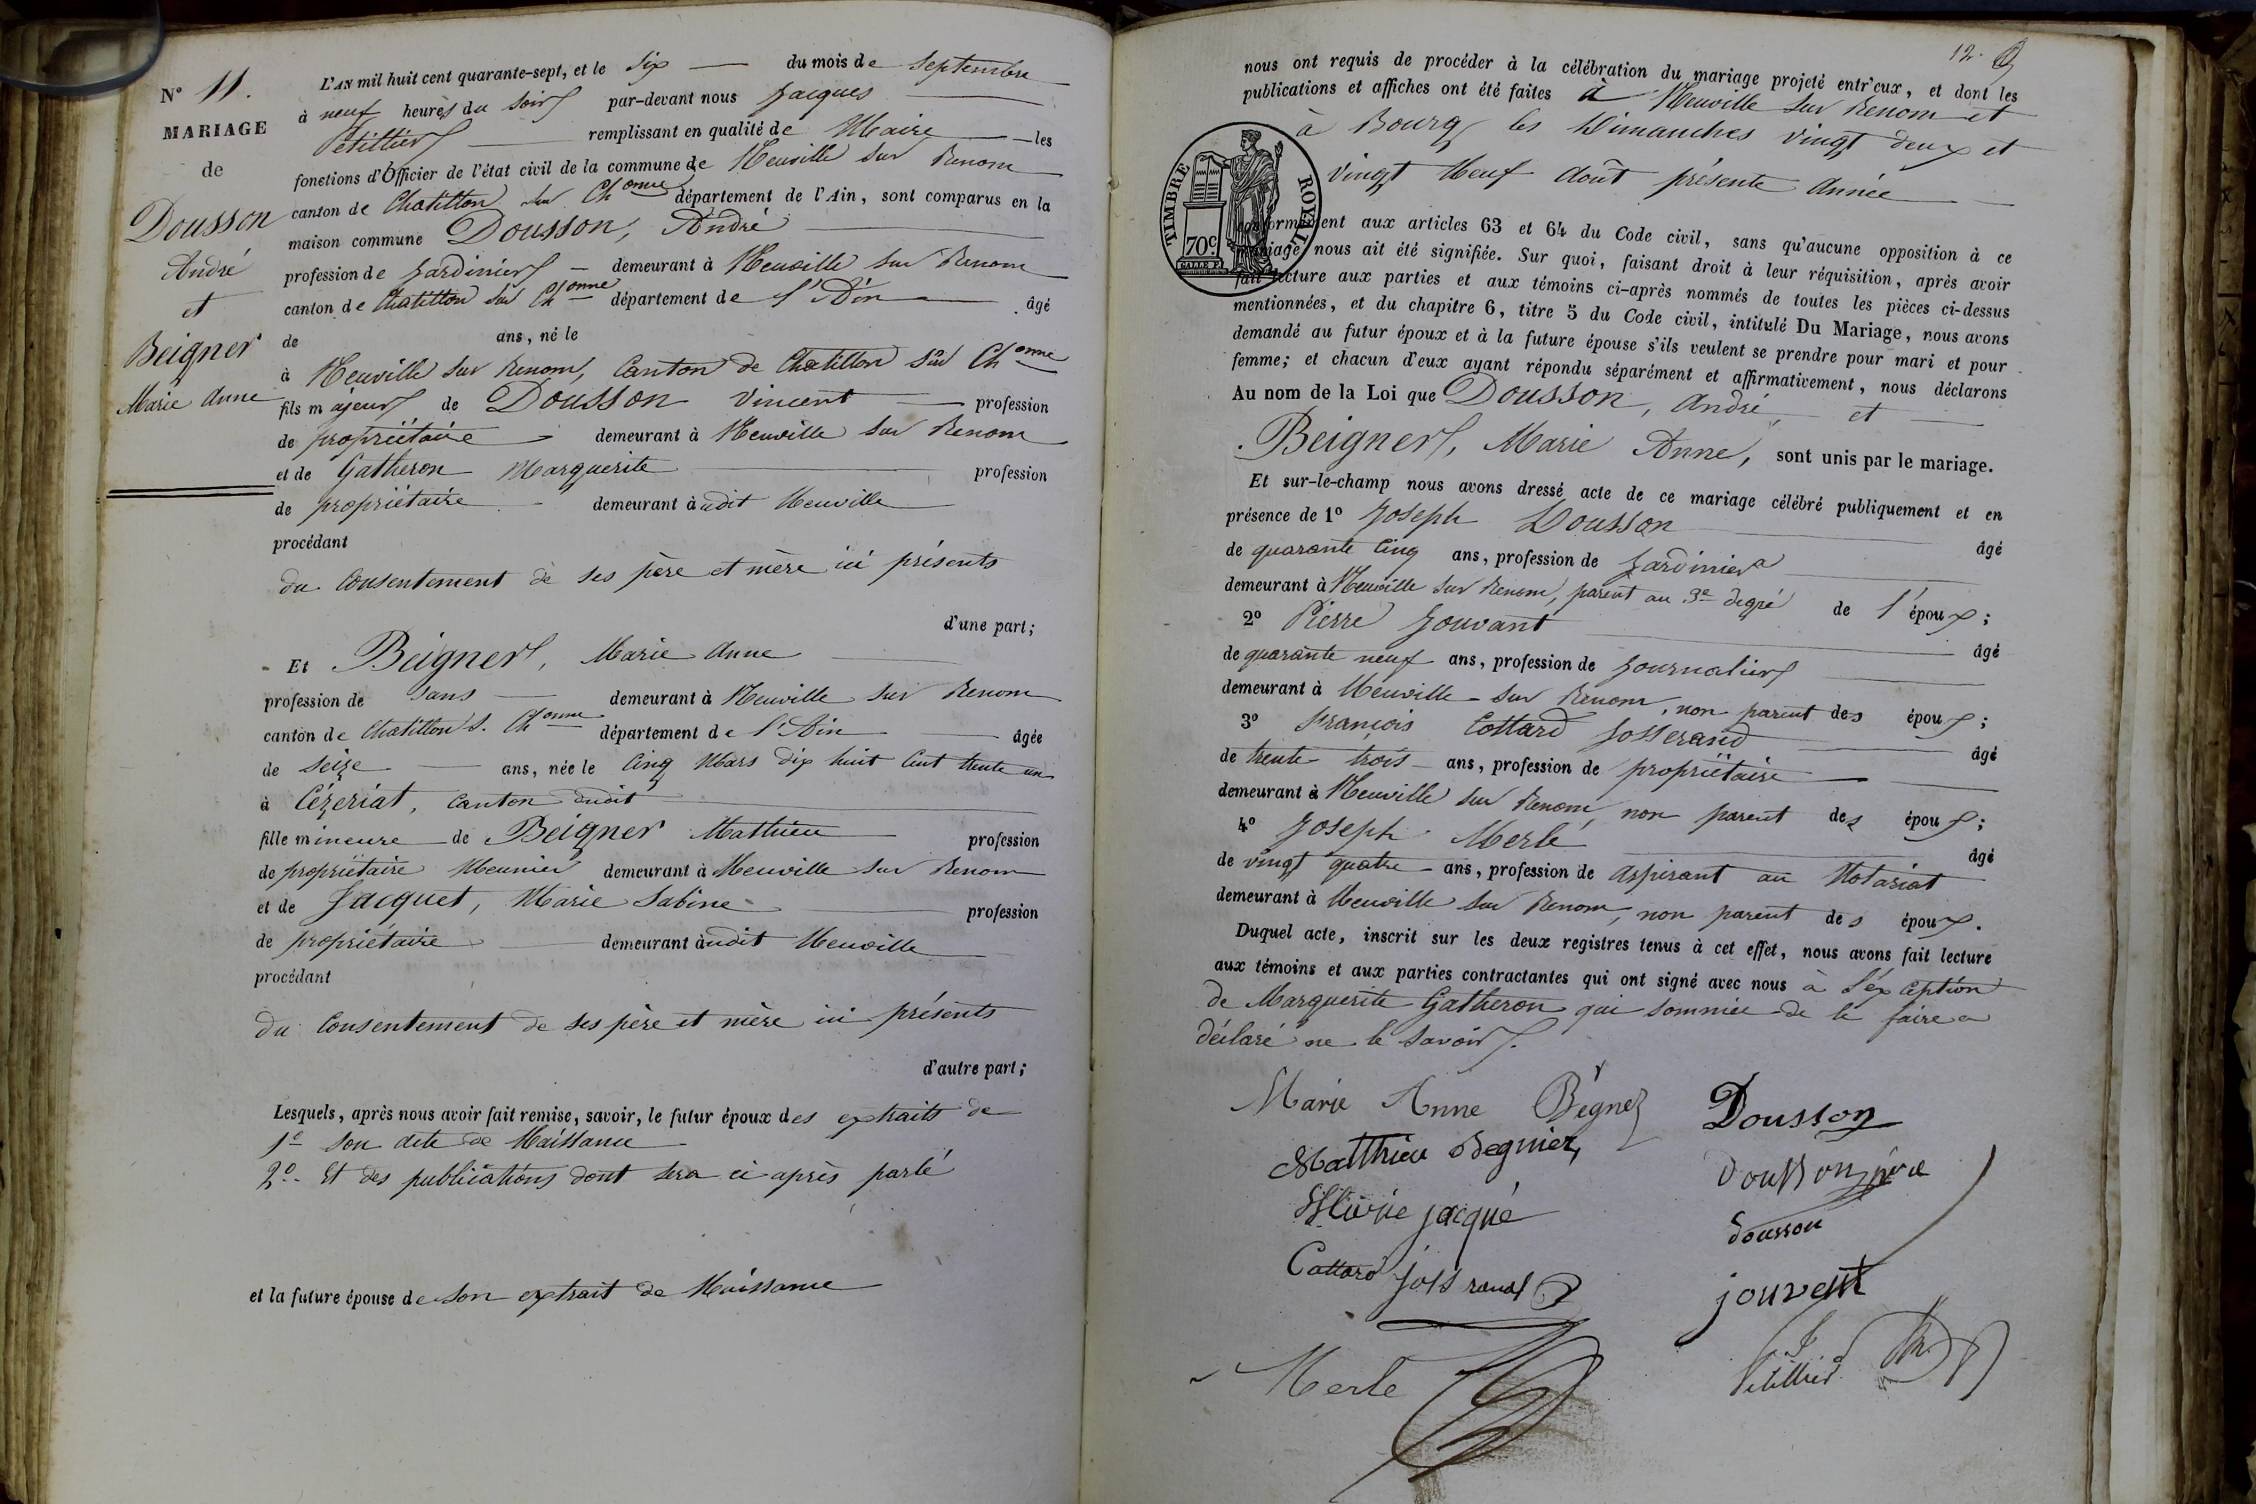 N° 11.
MARIAGE
de
Dousson
André
et
Beigner
Marie Anne
L'AN mil huit cent quarante-sept, et le six du mois de septembre
à neuf heures du soir par-devant nous Jacques
Petillier remplissant en qualité de Maire les
fonctions d'Officier de l'état civil de la commune de Neuville sur Renom
canton de Chatillon sur Chonne département de l'Ain, sont comparus en la
maison commune Dousson, André
profession de jardinier demeurant à Neuville sur Renom
canton de Chatillon sur Chonne département de l'Ain âgé
de ans, né le
à Neuville sur Renom, Canton de Chatillon sur Chonne
fils majeur de Dousson Vincent profession
de propriétaire demeurant à Neuville sur Renom
et de Gatheron Marguerite profession
de propriétaire demeurant à udit Neuville
procédant
du Consentement de ses père et mère ici présents
d'une part;
Et Beigner, Marie Anne
profession de sans demeurant à Neuville sur Renom
canton de Chatillon s. Chonne département de l'Ain âgée
de seize ans, née le Cinq Mars dix huit Cent trente un
à Cézeriat, Canton dudit
fille mineure de Beigner Mathieu profession
de propriétaire Meunier demeurant à Neuville sur Renom
et de Jacquet, Marie Sabine profession
de propriétaire demeurant à udit Neuville
procédant
du Consentement de ses père et mère ici présents
d'autre part;
Lesquels, après nous avoir fait remise, savoir, le futur époux des extraits de
1° son acte de Naissance
2° Et des publications dont sera ci après parlé
et la future épouse de son extrait de Naissance
12.
nous ont requis de procéder à la célébration du mariage projeté entr'eux, et dont les
publications et affiches ont été faites à Neuville sur Renom et
à Bourg les Dimanches vingt deux et
vingt Neuf août présente Année
TIMBRE ROYAL
70c
conformément aux articles 63 et 64 du Code civil, sans qu'aucune opposition à ce
mariage nous ait été signifiée. Sur quoi, faisant droit à leur réquisition, après avoir
fait lecture aux parties et aux témoins ci-après nommés de toutes les pièces ci-dessus
mentionnées, et du chapitre 6, titre 5 du Code civil, intitulé Du Mariage, nous avons
demandé au futur époux et à la future épouse s'ils veulent se prendre pour mari et pour
femme; et chacun d'eux ayant répondu séparément et affirmativement, nous déclarons
Au nom de la Loi que Dousson, André, et
Beigner, Marie Anne, sont unis par le mariage.
Et sur-le-champ nous avons dressé acte de ce mariage célébré publiquement et en
présence de 1° Joseph Dousson âgé
de quarante Cinq ans, profession de jardinier
demeurant à Neuville sur Renom, parent au 3e degré de l'époux;
2° Pierre Jouvant âgé
de quarante neuf ans, profession de journalier
demeurant à Neuville sur Renom, non parent des époux;
3° François Cottard Josserand âgé
de trente trois ans, profession de propriétaire
demeurant à Neuville sur Renom, non parent des époux;
4° Joseph Merle âgé
de vingt quatre ans, profession de aspirant au Notariat
demeurant à Neuville sur Renom, non parent des époux.
Duquel acte, inscrit sur les deux registres tenus à cet effet, nous avons fait lecture
aux témoins et aux parties contractantes qui ont signé avec nous à l'exception
de Marguerite Gatheron qui sommée de le faire a
déclaré ne le savoir.
Marie Anne Bégner Dousson
Matthieu Begnier, Dousson père
Marie jacqué Dousson
Cottard Josserand jouvent
Merle Petillier